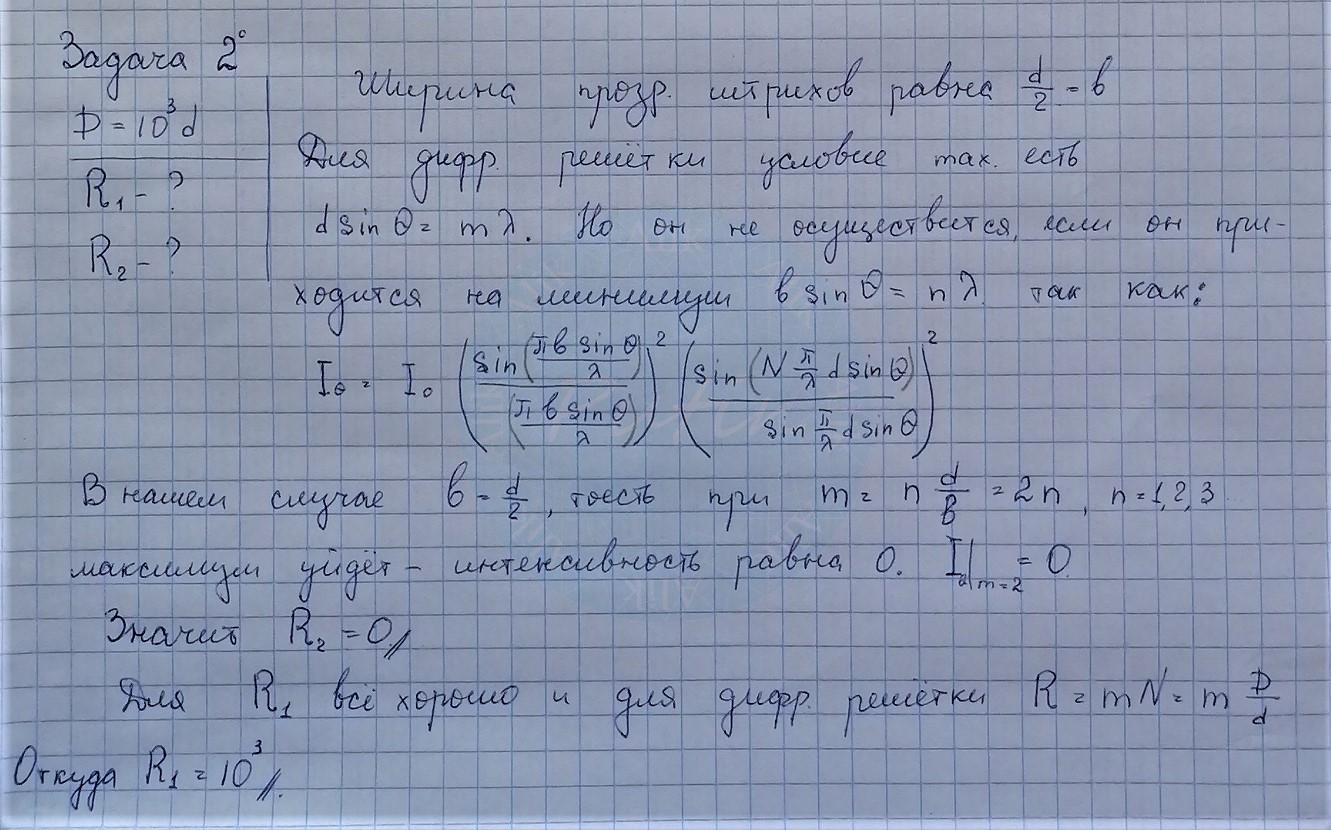 Задача 2°
D = 10³ d
R₁ - ?
R₂ - ?
Ширина прозр. штрихов равна d/2 = b
Для дифр. решётки условие max. есть
d sin θ = m λ. Но он не осуществится, если он при-
ходится на минимум b sin θ = n λ так как:
I_θ = I₀ (sin(πb sin θ/λ)/(πb sin θ/λ))² (sin(N π/λ d sin θ)/sin π/λ d sin θ)²
В нашем случае b = d/2, тоесть при m = n d/b = 2n, n = 1,2,3
максимум уйдёт – интенсивность равна 0. I|ₘ₌₂ = 0
Значит R₂ = 0//
Для R₁ всё хорошо и для дифр. решётки R = mN = m D/d
Откуда R₁ = 10³//.